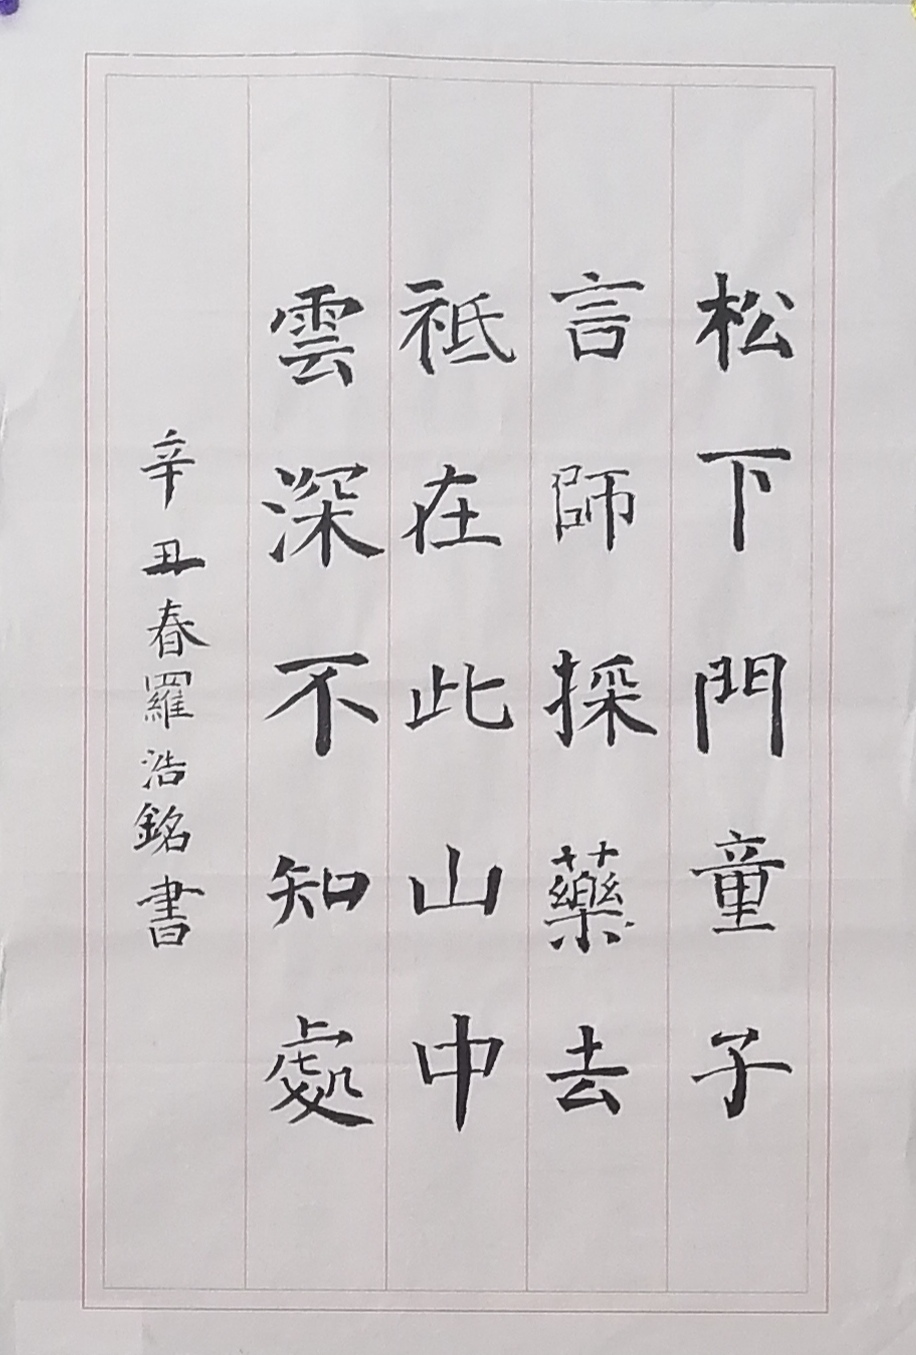 松下門童子
言師採藥去
祗在此山中
雲深不知處
辛丑春羅浩銘書